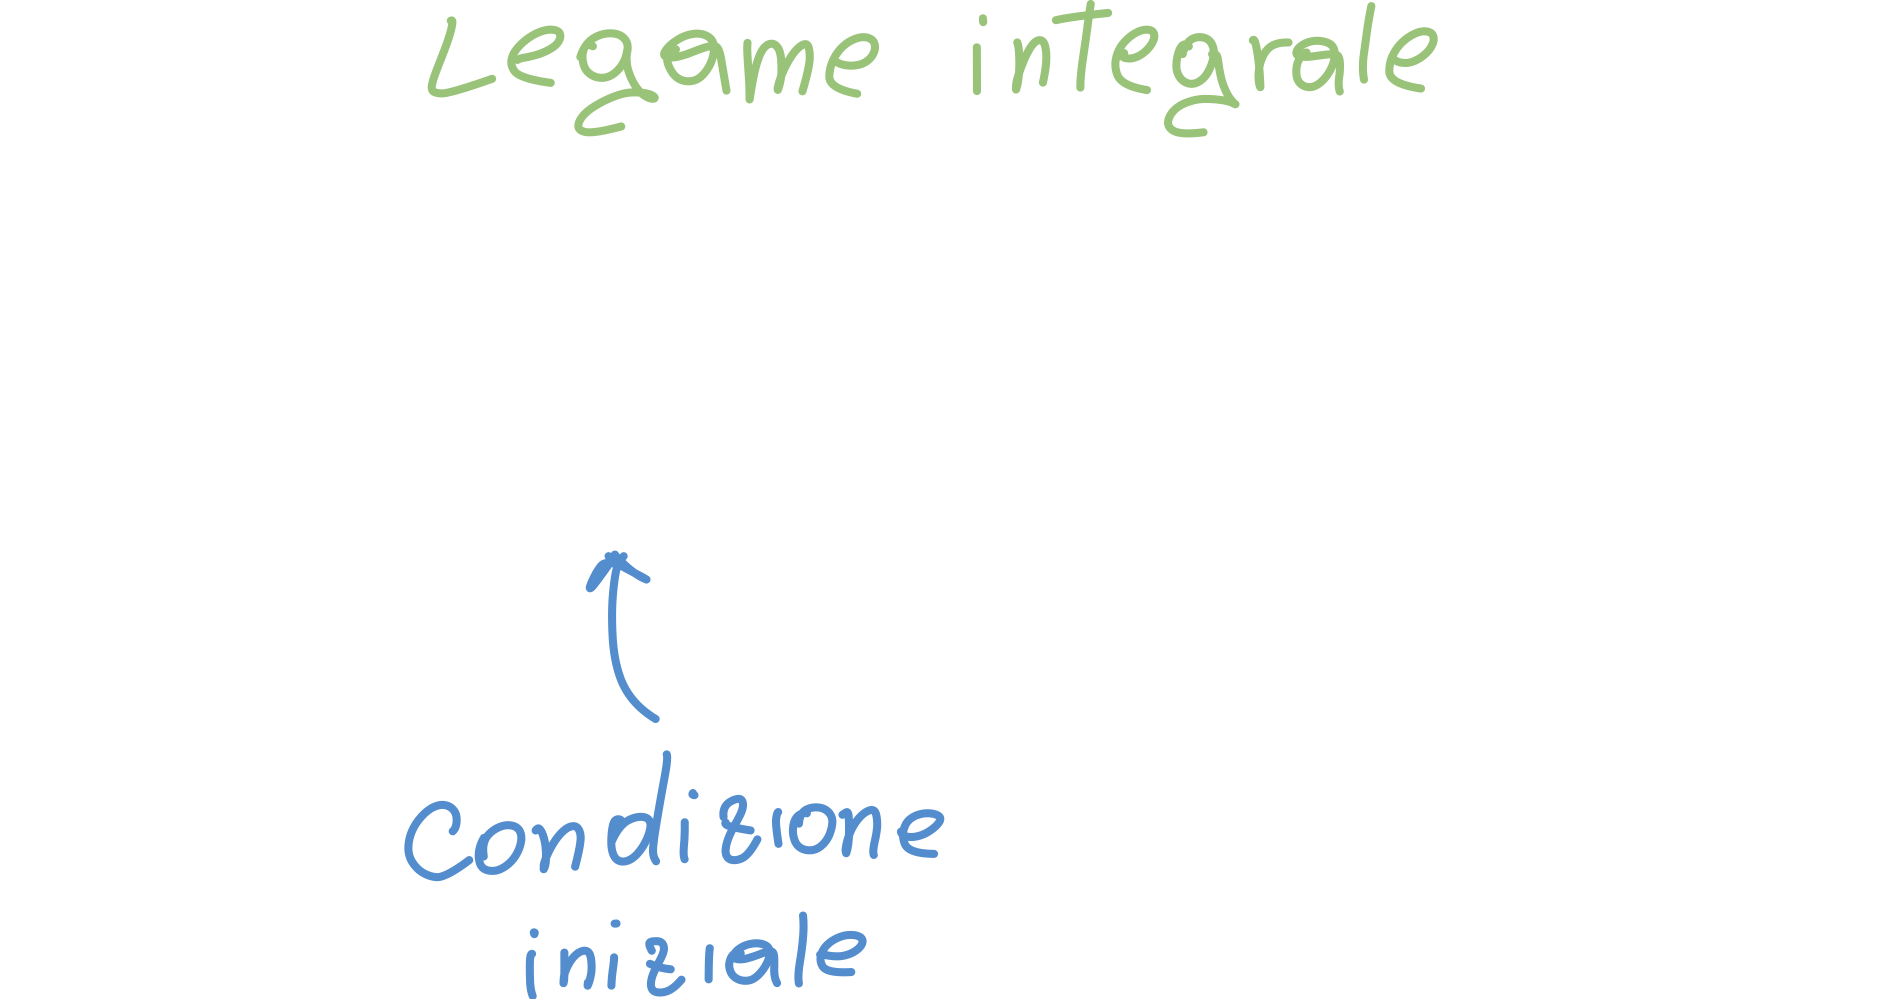 Legame integrale
Condizione
iniziale